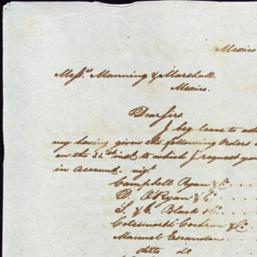 Mexico
Mess.rs Manning & Marshall.
Mexico.
Dear Sirs
I beg leave to ad
my having given the following Orders
on the inst. to which I request you
in account. viz.
Campbell Ryan & C.º . . .
D. O'Ryan & C.º . . .
S. & C. Black & C.º . . .
Colesworth Cochran & C.º
Manuel Escandon . . .
ditto do